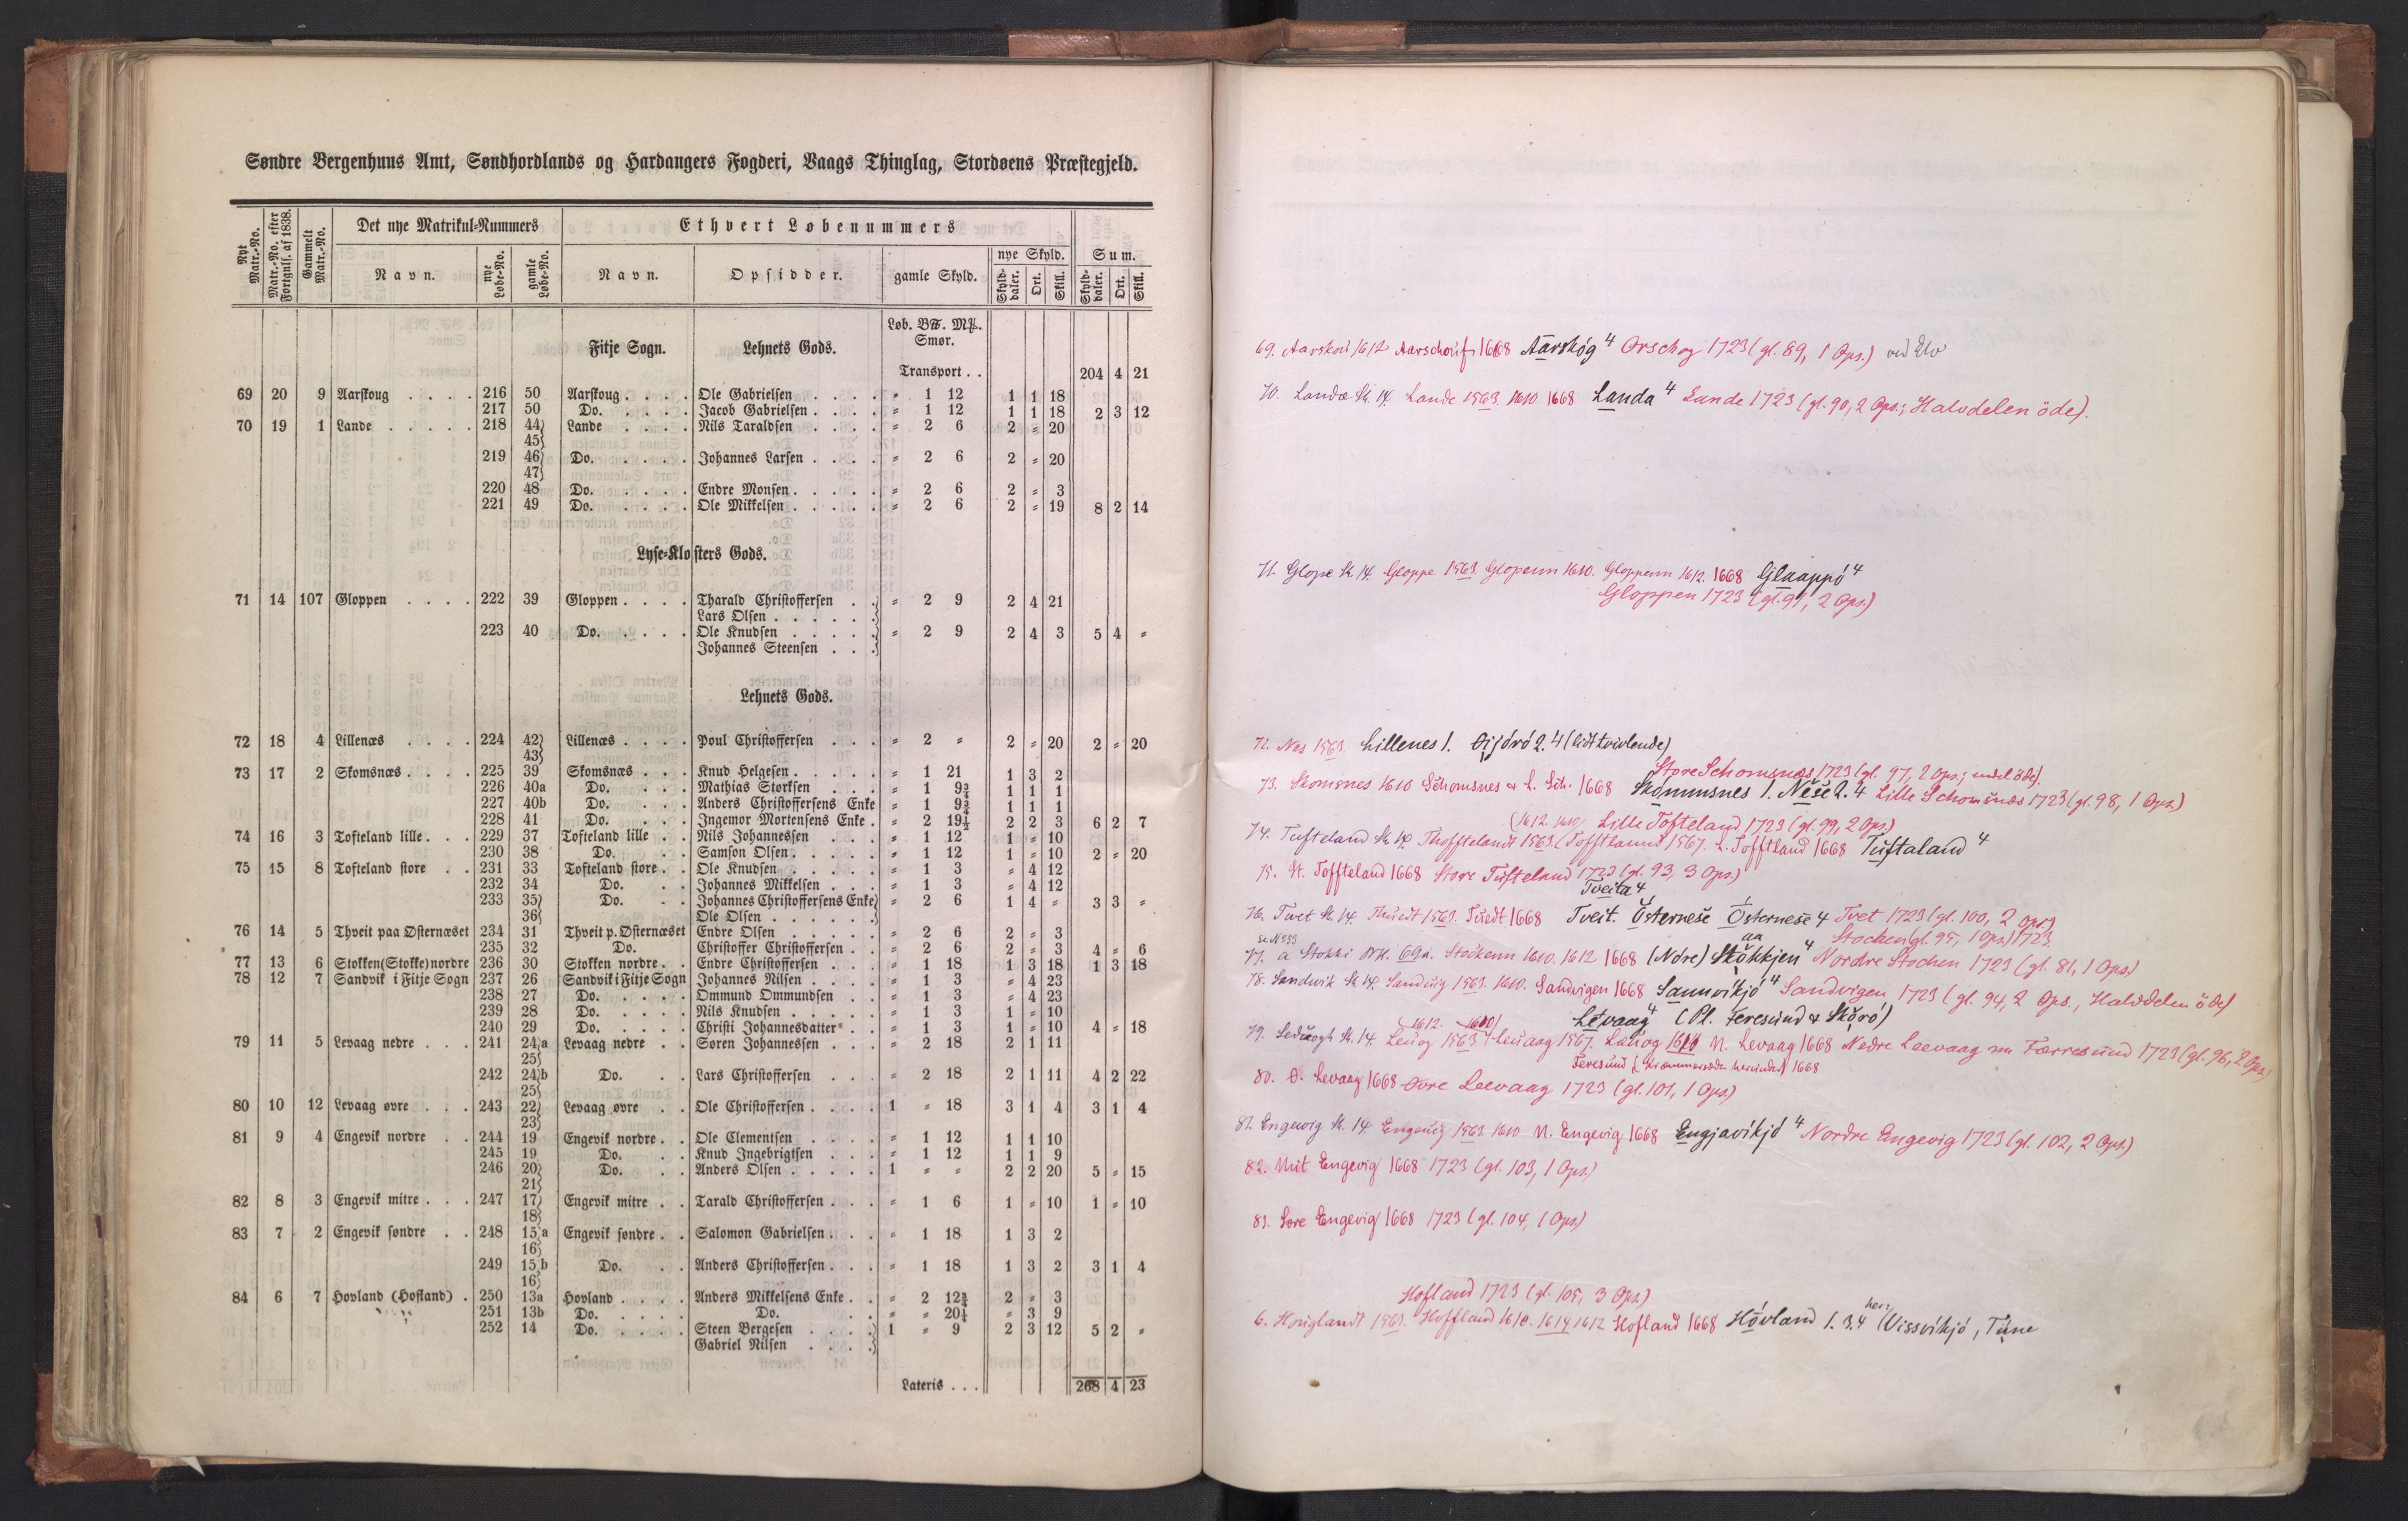 Søndre Bergenhuus Amt, Søndhordlands og Hardangers Fogderi, Vaags Thinglag, Stordøens Præstegjeld.
Nyt Matr.-No. Matr.-No. efter Fortgnls. af 1838. Gammelt Matr.-No. Det nye Matrikul-Nummers Ethvert Løbenummers
Navn. nye Løbe-No. gamle Løbe-No. Navn. Opsidder. gamle Skyld. nye Skyld. Sum.
Skyld-daler. Ort. Skill. Skyld-daler. Ort. Skill.
Løb. B℔. M℔.
Fitje Sogn. Lehnets Gods. Smør.
Transport . . 204 4 21
69 20 9 Aarskoug . . . . 216 50 Aarskoug . . . . Ole Gabrielsen . . . . „ 1 12 1 1 18
217 50 Do. . . . . Jacob Gabrielsen . . . . „ 1 12 1 1 18 2 3 12
70 19 1 Lande . . . . . 218 44) Lande . . . . Nils Taraldsen . . . . „ 2 6 2 „ 20
45)
219 46) Do. . . . . Johannes Larsen . . . . „ 2 6 2 „ 20
47)
220 48 Do. . . . . Endre Monsen . . . . . „ 2 6 2 „ 3
221 49 Do. . . . . Ole Mikkelsen . . . . . „ 2 6 2 „ 19 8 2 14
Lyse-Klosters Gods.
71 14 107 Gloppen . . . . 222 39 Gloppen . . . . Tharald Christoffersen . .) „ 2 9 2 4 21
Lars Olsen . . . . . .)
223 40 Do. . . . . Ole Knudsen . . . . .) „ 2 9 2 4 3 5 4 „
Johannes Steensen . . .)
Lehnets Gods.
72 18 4 Lillenæs . . . . 224 42) Lillenæs . . . . Poul Christoffersen . . . „ 2 „ 2 „ 20 2 „ 20
43)
73 17 2 Skomsnæs . . . . 225 39 Skomsnæs . . . Knud Helgesen . . . . . „ 1 21 1 3 2
226 40a Do. . . . Mathias Størksen . . . „ 1 9¾ 1 1 1
227 40b Do. . . . Anders Christoffersens Enke „ 1 9¾ 1 1 1
228 41 Do. . . . Ingemor Mortensens Enke . „ 2 19½ 2 2 3 6 2 7
74 16 3 Tofteland lille . . . 229 37 Tofteland lille . . Nils Johannessen . . . „ 1 12 1 „ 10
230 38 Do. . . Samson Olsen . . . . . „ 1 12 1 „ 10 2 „ 20
75 15 8 Tofteland store . . 231 33 Tofteland store . . Ole Knudsen . . . . . „ 1 3 „ 4 12
232 34 Do. . . Johannes Mikkelsen . . . „ 1 3 „ 4 12
233 35) Do. . . Johannes Christoffersens Enke) „ 2 6 1 4 „ 3 3 „
36) Ole Olsen . . . . . .)
76 14 5 Thveit paa Østernæset 234 31 Thveit p. Østernæset Endre Olsen . . . . . „ 2 6 2 „ 3
235 32 Do. Christoffer Christoffersen . . „ 2 6 2 „ 3 4 „ 6
77 13 6 Stokken (Stokke) nordre 236 30 Stokken nordre . . Endre Christoffersen . . . „ 1 18 1 3 18 1 3 18
78 12 7 Sandvik i Fitje Sogn 237 26 Sandvik i Fitje Sogn Johannes Nilsen . . . . „ 1 3 „ 4 23
238 27 Do. . . . . Ommund Ommundsen . . „ 1 3 „ 4 23
239 28 Do. . . . . Nils Knudsen . . . . . „ 1 3 1 „ 10
240 29 Do. . . . . Christi Johannesdatter . . „ 1 3 1 „ 10 4 „ 18
79 11 5 Levaag nedre . . . 241 24)a Levaag nedre . . Søren Johannessen . . . „ 2 18 2 1 11
25)
242 24)b Do. . . Lars Christoffersen . . . „ 2 18 2 1 11 4 2 22
25)
80 10 12 Levaag øvre . . . 243 22) Levaag øvre . . Ole Christoffersen . . . . 1 „ 18 3 1 4 3 1 4
23)
81 9 4 Engevik nordre . . 244 19 Engevik nordre . . Ole Clementsen . . . . „ 1 12 1 1 10
245 19 Do. . . Knud Ingebrigtsen . . . „ 1 12 1 1 9
246 20) Do. . . Anders Olsen . . . . . 1 „ „ 2 2 20 5 „ 15
21)
82 8 3 Engevik mitre . . . 247 17) Engevik mitre . . Tarald Christoffersen . . . „ 1 6 1 „ 10 1 „ 10
18)
83 7 2 Engevik søndre . . 248 15)a Engevik søndre . . Salomon Gabrielsen . . . „ 1 18 1 3 2
16)
249 15)b Do. . . Anders Christoffersen . . . „ 1 18 1 3 2 3 1 4
16)
84 6 7 Hovland (Hofland) . 250 13a Hovland . . . . Anders Mikkelsens Enke . . „ 2 12¾ 2 „ 3
251 13b Do. . . . . Do. . . „ „ 20¼ „ 3 9
252 14 Do. . . . . Steen Bergesen . . . .) 1 „ 9 2 3 12 5 2 „
Gabriel Nilsen . . . .)
Lateris . . . 268 4 23
69. Aarskou 1612 Aarschouf 1668 Aarskóg 4 Orschog 1723 (gl. 89, 1 Ops.)
70. Landæ Sk. 14. Lande 1563. 1610 1668 Landa 4 Lande 1723 (gl. 90, 2 Ops.; Halvdelen öde).
71. Glope Sk. 14. Gloppe 1563. Glopenn 1610. Gloppenn 1612. 1668 Glaappó 4
Gloppen 1723 (gl. 91, 2 Ops.)
72. Nes 1563. Lillenes 1. Öijóró 2. 4 (lidt tvivlende)
Store Schomsnæs 1723 (gl. 97, 2 Ops.; endel öde).
73. Skomsnes 1610 Schomsnes & L. Sch. 1668 Skómmsnes 1. Nese 2. 4 Lille Schomsnæs 1723 (gl. 98, 1 Ops.)
(1612. 1610) Lille Tofteland 1723 (gl. 99, 2 Ops.)
74. Tufteland Sk. 14 Thofftelandt 1563. (Tofftlannd 1567. L. Tofftland 1668 Tuftaland 4
75. St. Toffteland 1668 Store Tufteland 1723 (gl. 93, 3 Ops.)
Tveita 4
76. Tvet Sk. 14. Thuedt 1563. Tuedt 1668 Tveit. Österneše Österneše 4 Tvet 1723 (gl. 100, 2 Ops.)
se No 33 Stochen (gl. 95, 1 Ops.) 1723
77. a Stokki NK. 69a. Stockenn 1610. 1612 1668 (Nóre) Stókkjen 4 Nordre Stochen 1723 (gl. 81, 1 Ops.)
78. Sandwik Sk. 14. Sanduig 1563. 1610. Sandvigen 1668 Sannvikjó 4 Sandvigen 1723 (gl. 94, 2 Ops., Halvdelen öde)
(1612. 1610) Letvaag 4 (Pl. Feresund & Skóró)
79. Leduaogh Sk. 14 Leuog 1563. Leuaag 1567. Læuog 1610 N. Levaag 1668 Nedre Leevaag m Færresund 1723 (gl. 96, 2 Ops.)
Feresund (Kræmmersæde herunder) 1668
80. Ö. Levaag 1668 Øvre Leevaag 1723 (gl. 101, 1 Ops.)
81. Engewig Sk. 14. Engeuig 1563. 1610 N. Engevig 1668 Engjavikjó 4 Nordre Engevig 1723 (gl. 102, 2 Ops.)
82. Mit Engevig 1668 1723 (gl. 103, 1 Ops.)
83. Søre Engevig 1668 1723 (gl. 104, 1 Ops.)
Hofland 1723 (gl. 105, 3 Ops.)
6. Houglandt 1563. Hoffland 1610. 1614 1612 Hofland 1668 Hóvland 1. 3. 4 her: (Vissvikjó, Tüne